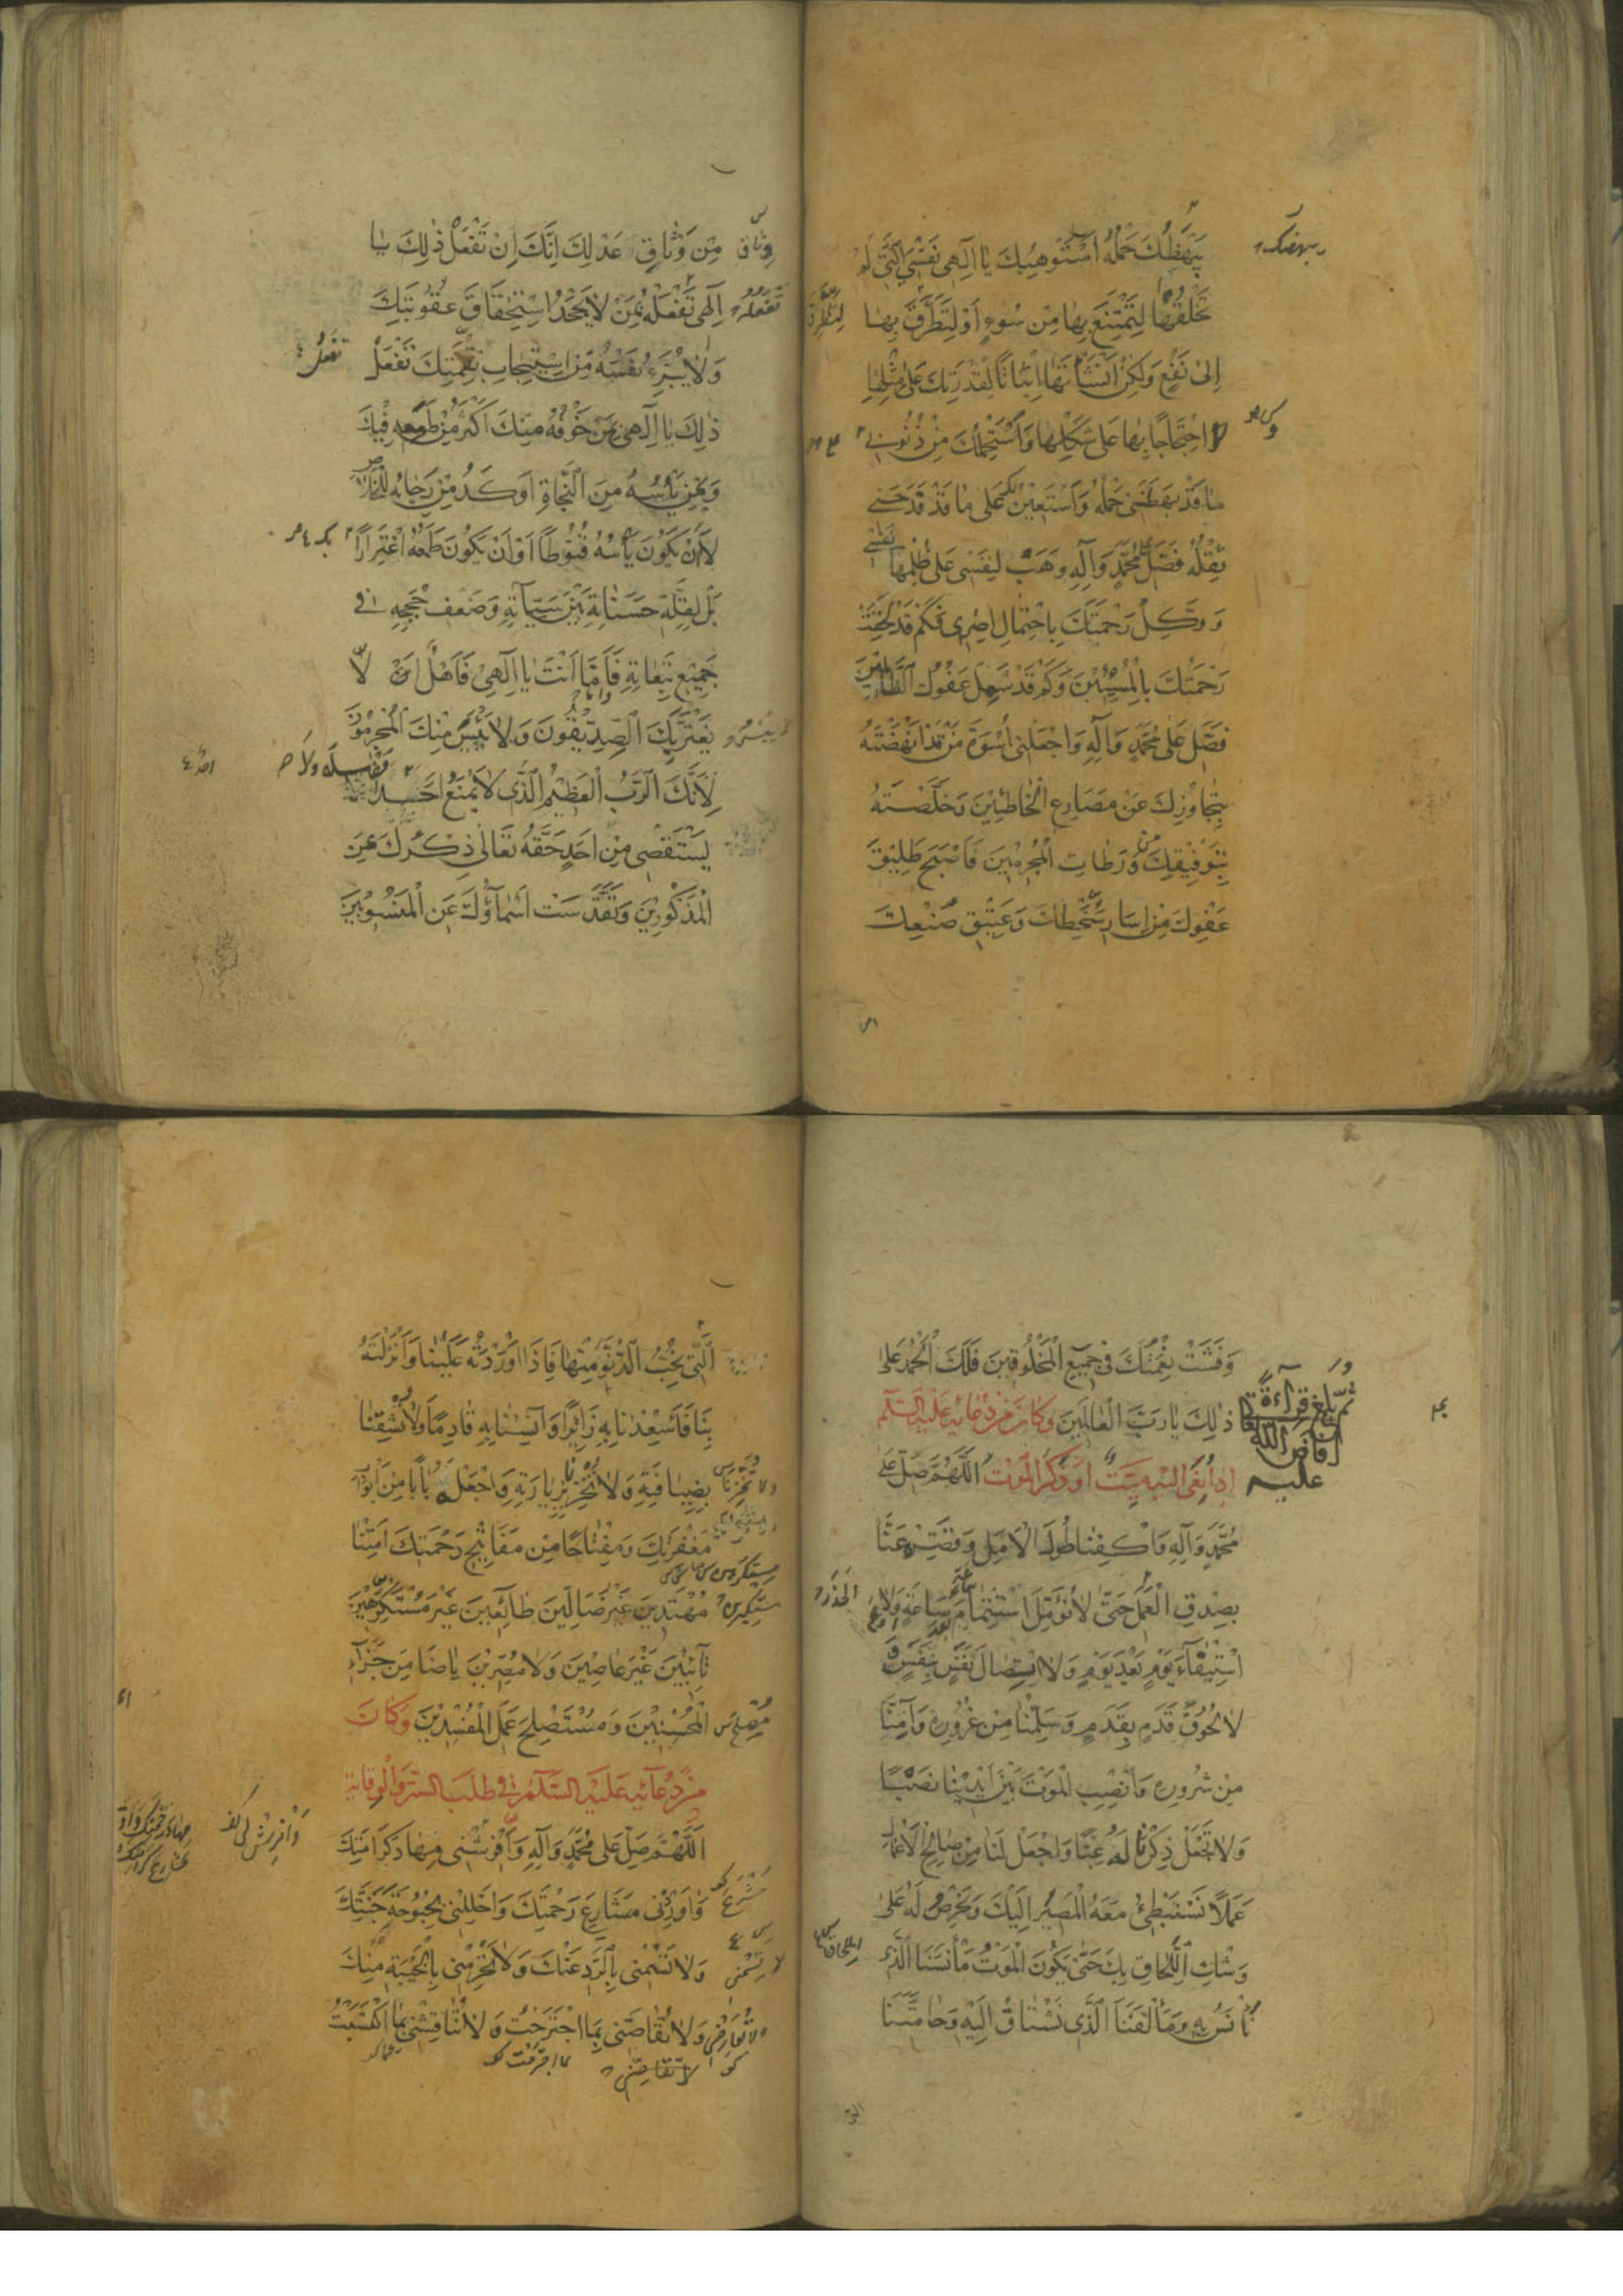 يَبْهَظُكَ حَمْلُهُ اَسْتَوْهِبُكَ يَا اِلٰهِي نَفْسِيَ الَّتِي لَمْ
تَخْلُقْهَا لِتَمْتَنِعَ بِهَا مِنْ سُوءٍ اَوْ لِتَطَرَّقَ بِهَا
اِلٰى نَفْعٍ وَلٰكِنْ اَنْشَأْتَهَا اِثْبَاتًا لِقُدْرَتِكَ عَلٰى مِثْلِهَا
وَاحْتِجَاجًا بِهَا عَلٰى شَكْلِهَا وَاَسْتَحْمِلُكَ مِنْ ذُنُوبِي
مَا قَدْ بَهَظَنِي حَمْلُهُ وَاَسْتَعِينُ بِكَ عَلٰى مَا قَدْ فَدَحَنِي
ثِقْلُهُ فَصَلِّ عَلٰى مُحَمَّدٍ وَآلِهِ وَهَبْ لِنَفْسِي عَلٰى ظُلْمِهَا نَفْسِي
وَوَكِّلْ رَحْمَتَكَ بِاحْتِمَالِ اِصْرِي فَكَمْ قَدْ لَحِقَتْ
رَحْمَتُكَ بِالْمُسِيئِينَ وَكَمْ قَدْ شَمِلَ عَفْوُكَ الظَّالِمِينَ
فَصَلِّ عَلٰى مُحَمَّدٍ وَآلِهِ وَاجْعَلْنِي اُسْوَةَ مَنْ قَدْ اَنْهَضْتَهُ
بِتَجَاوُزِكَ عَنْ مَصَارِعِ الْخَاطِئِينَ وَخَلَّصْتَهُ
بِتَوْفِيقِكَ مِنْ وَرَطَاتِ الْمُجْرِمِينَ فَاَصْبَحَ طَلِيقَ
عَفْوِكَ مِنْ اِسَارِ سُخْطِكَ وَعَتِيقَ صُنْعِكَ
وِثَاقِ مِنْ وَثَاقِ عَدْلِكَ اِنَّكَ اِنْ تَفْعَلْ ذٰلِكَ يَا
اِلٰهِي تَفْعَلْهُ بِمَنْ لَا يَجْحَدُ اسْتِحْقَاقَ عُقُوبَتِكَ
وَلَا يُبَرِّئُ نَفْسَهُ مِنِ اسْتِيجَابِ نِقْمَتِكَ تَفْعَلْ
ذٰلِكَ يَا اِلٰهِي بِمَنْ خَوْفُهُ مِنْكَ اَكْثَرُ مِنْ طَمَعِهِ فِيكَ
وَبِمَنْ يَأْسُهُ مِنَ النَّجَاةِ اَوْكَدُ مِنْ رَجَائِهِ لِلْخَلَاصِ
لَا اَنْ يَكُونَ يَأْسُهُ قُنُوطًا اَوْ اَنْ يَكُونَ طَمَعُهُ اغْتِرَارًا
بَلْ لِقِلَّةِ حَسَنَاتِهِ بَيْنَ سَيِّئَاتِهِ وَضَعْفِ حُجَجِهِ فِي
جَمِيعِ تَبِعَاتِهِ فَاَمَّا اَنْتَ يَا اِلٰهِي فَاَهْلٌ اَنْ لَا
يَغْتَرَّ بِكَ الصِّدِّيقُونَ وَلَا يَيْأَسَ مِنْكَ الْمُجْرِمُونَ
لِاَنَّكَ الرَّبُّ الْعَظِيمُ الَّذِي لَا يَمْنَعُ اَحَدًا
يَسْتَقْصِي مِنْ اَحَدٍ حَقَّهُ تَعَالٰى ذِكْرُكَ عَنِ
الْمَذْكُورِينَ وَتَقَدَّسَتْ اَسْمَاؤُكَ عَنِ الْمَنْسُوبِينَ
وَفَشَتْ نِعْمَتُكَ فِي جَمِيعِ الْمَخْلُوقِينَ فَلَكَ الْحَمْدُ عَلٰى
ذٰلِكَ يَا رَبَّ الْعَالَمِينَ وَكَانَ مِنْ دُعَائِهِ عَلَيْهِ السَّلَمُ
اِذَا نُعِيَ اِلَيْهِ مَيِّتٌ اَوْ ذَكَرَ الْمَوْتَ اللّٰهُمَّ صَلِّ عَلٰى
مُحَمَّدٍ وَآلِهِ وَاكْفِنَا طُولَ الْاَمَلِ وَقَصِّرْهُ عَنَّا
بِصِدْقِ الْعَمَلِ حَتّٰى لَا نُؤَمِّلَ اسْتِتْمَامَ سَاعَةٍ بَعْدَ سَاعَةٍ وَلَا
اسْتِيفَاءَ يَوْمٍ بَعْدَ يَوْمٍ وَلَا اتِّصَالَ نَفَسٍ بِنَفَسٍ وَ
لَا لُحُوقَ قَدَمٍ بِقَدَمٍ وَسَلِّمْنَا مِنْ غُرُورِهِ وَآمِنَّا
مِنْ شُرُورِهِ وَانْصِبِ الْمَوْتَ بَيْنَ اَيْدِينَا نَصْبًا
وَلَا تَجْعَلْ ذِكْرَنَا لَهُ غِبًّا وَاجْعَلْ لَنَا مِنْ صَالِحِ الْاَعْمَالِ
عَمَلًا نَسْتَبْطِئُ مَعَهُ الْمَصِيرَ اِلَيْكَ وَنَحْرِصُ لَهُ عَلٰى
وَشْكِ اللِّحَاقِ بِكَ حَتّٰى يَكُونَ الْمَوْتُ مَأْنَسَنَا الَّذِي
نَأْنَسُ بِهِ وَمَأْلَفَنَا الَّذِي نَشْتَاقُ اِلَيْهِ وَحَامَّتَنَا
الَّتِي نُحِبُّ الدُّنُوَّ مِنْهَا فَاِذَا اَوْرَدْتَهُ عَلَيْنَا وَاَنْزَلْتَهُ
بِنَا فَاَسْعِدْنَا بِهِ زَائِرًا وَآنِسْنَا بِهِ قَادِمًا وَلَا تُشْقِنَا
بِضِيَافَتِهِ وَلَا تُخْزِنَا بِزِيَارَتِهِ وَاجْعَلْهُ بَابًا مِنْ اَبْوَابِ
مَغْفِرَتِكَ وَمِفْتَاحًا مِنْ مَفَاتِيحِ رَحْمَتِكَ اَمِتْنَا
مُهْتَدِينَ غَيْرَ ضَالِّينَ طَائِعِينَ غَيْرَ مُسْتَكْرِهِينَ
تَائِبِينَ غَيْرَ عَاصِينَ وَلَا مُصِرِّينَ يَا ضَامِنَ جَزَاءِ
الْمُحْسِنِينَ وَمُسْتَصْلِحَ عَمَلِ الْمُفْسِدِينَ وَكَانَ
مِنْ دُعَائِهِ عَلَيْهِ السَّلَمُ فِي طَلَبِ السِّتْرِ وَالْوِقَايَةِ
اَللّٰهُمَّ صَلِّ عَلٰى مُحَمَّدٍ وَآلِهِ وَاَفْرِشْنِي مِهَادَ كَرَامَتِكَ
وَاَوْرِدْنِي مَشَارِعَ رَحْمَتِكَ وَاَحْلِلْنِي بُحْبُوحَةَ جَنَّتِكَ
وَلَا تَسُمْنِي بِالرَّدِّ عَنْكَ وَلَا تَحْرِمْنِي بِالْخَيْبَةِ مِنْكَ
وَلَا تُقَاصَّنِي بِمَا اجْتَرَحْتُ وَلَا تُنَاقِشْنِي بِمَا اكْتَسَبْتُ